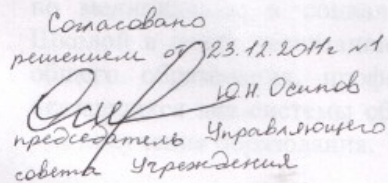 Согласовано
решением от 23.12.2011г №1
Ю.Н. Осипов
председатель Управляющего
совета Учреждения